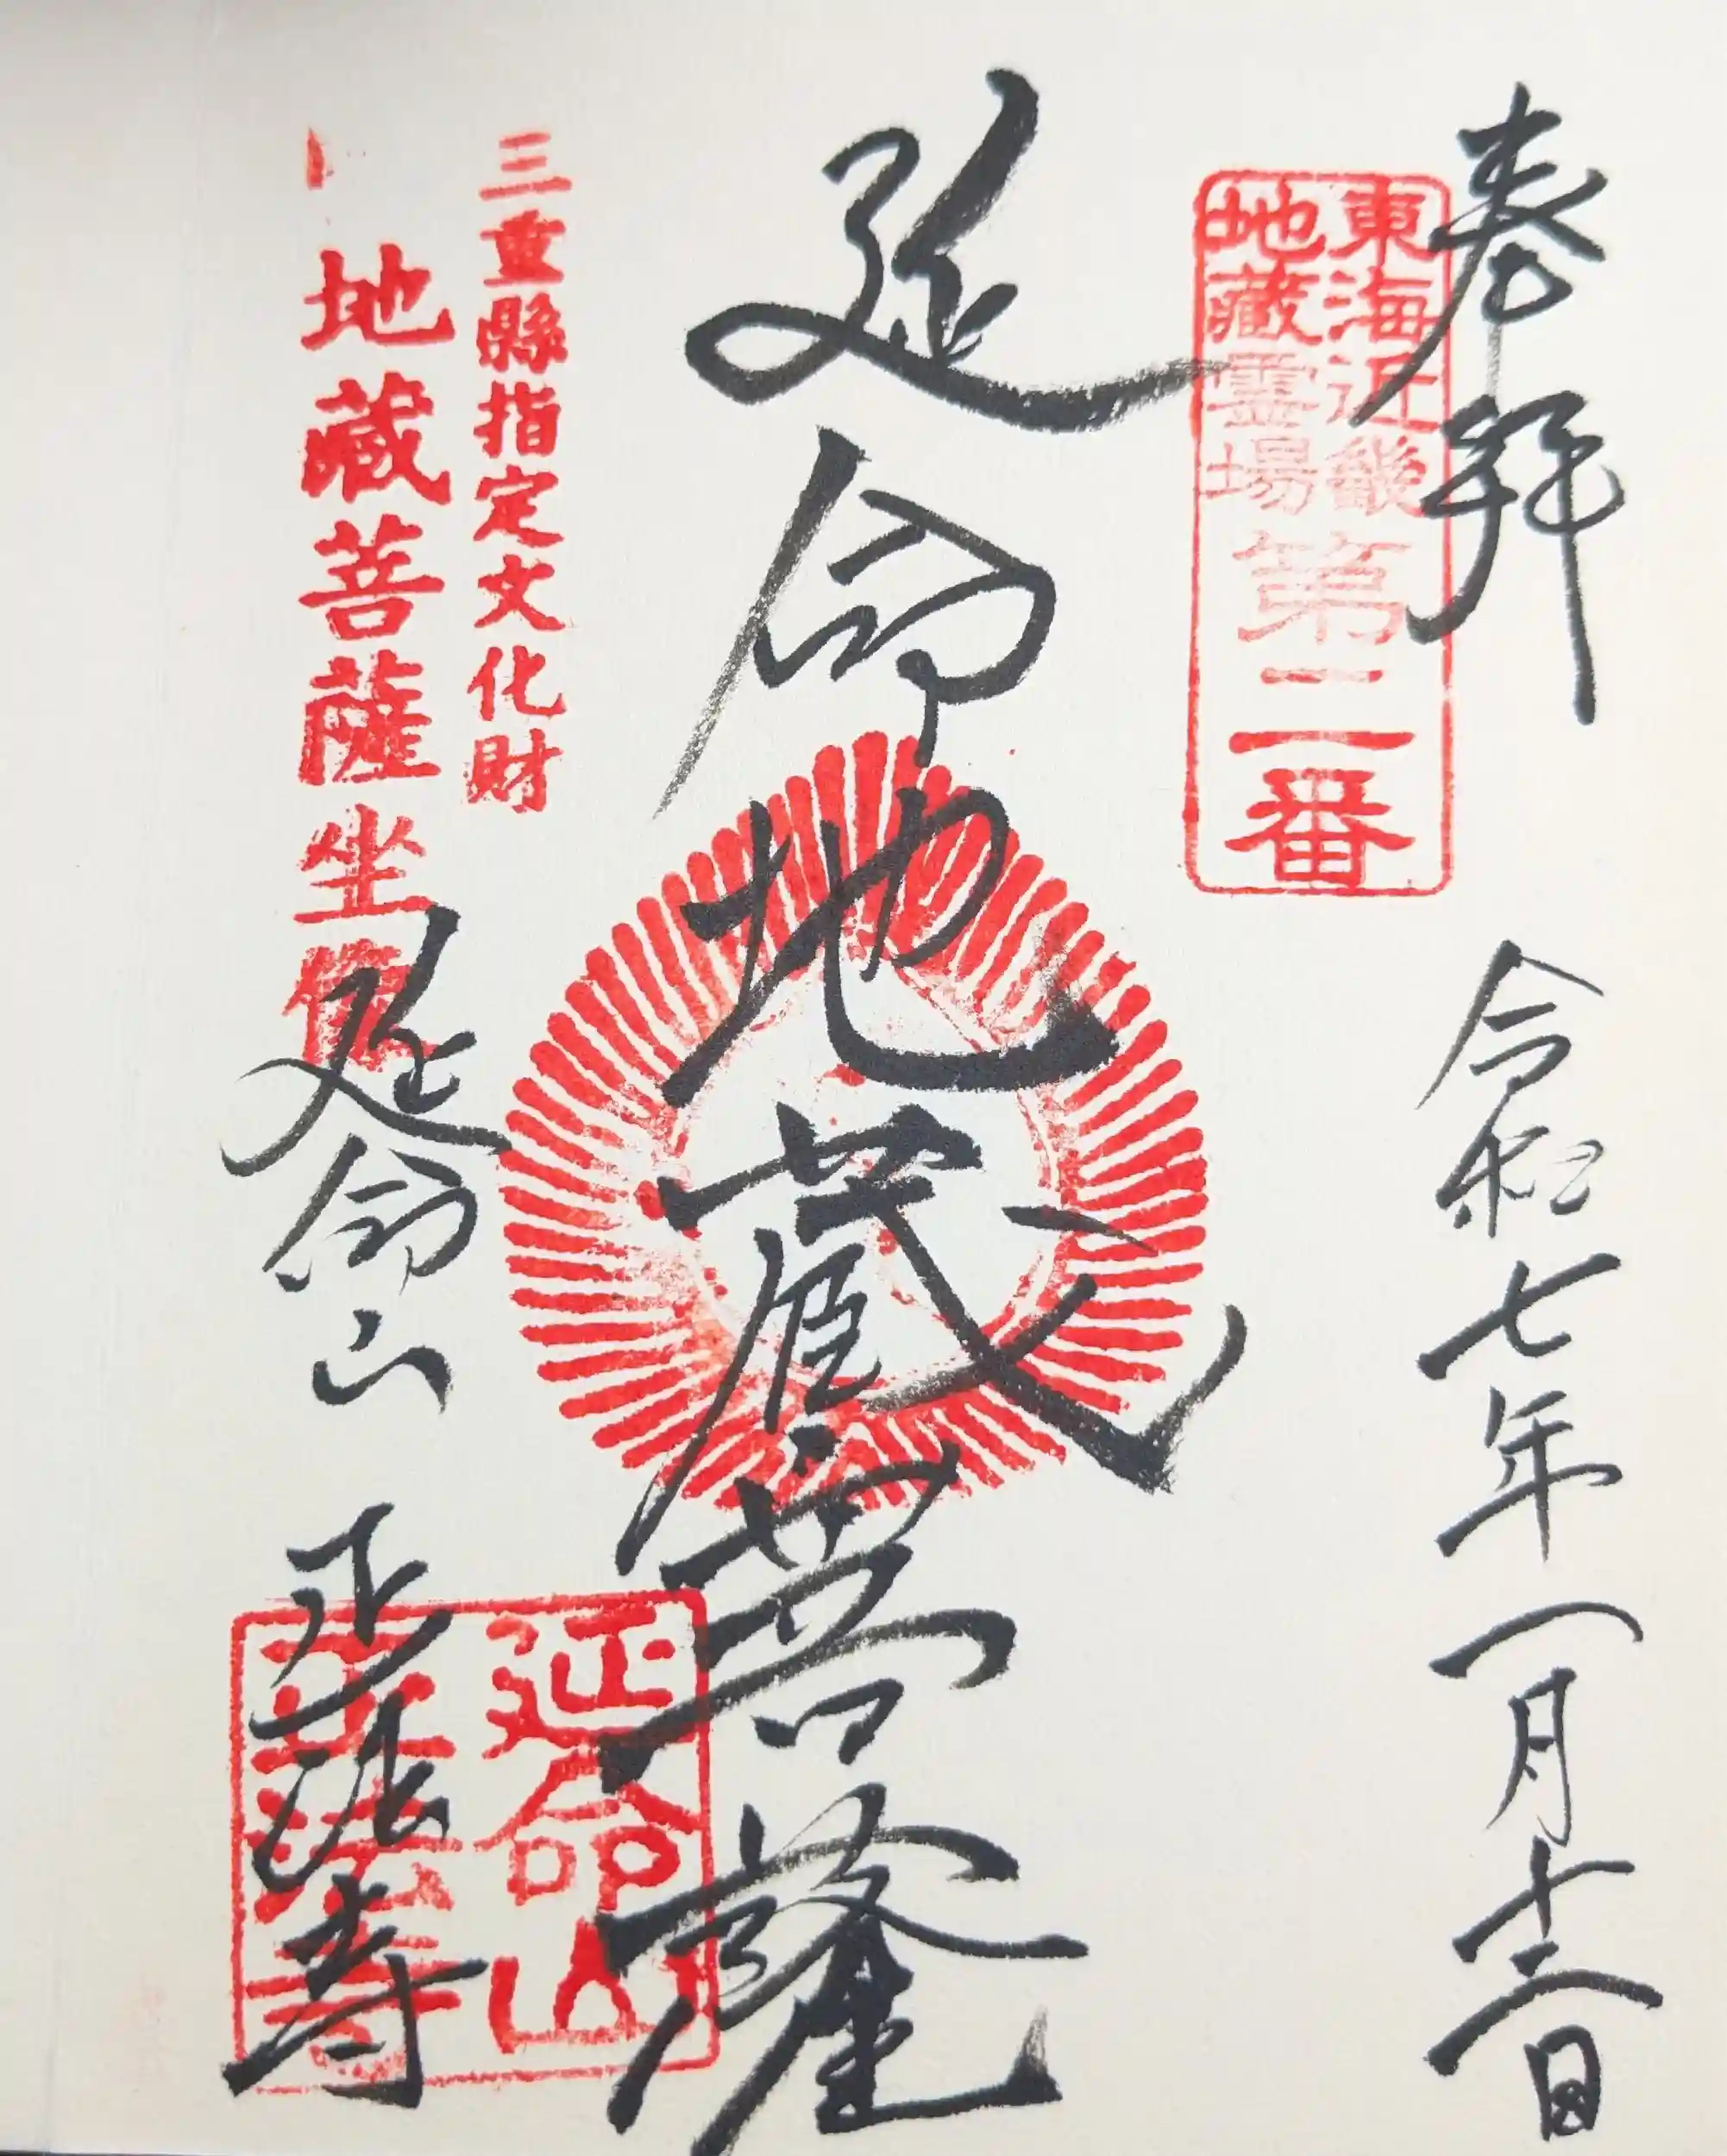 奉拝
令和七年一月十二日
東海近畿
地藏霊場
第二番
延命地蔵菩薩
三重縣指定文化財
地蔵菩薩坐像
延命山
正法寺
延命山
正法寺